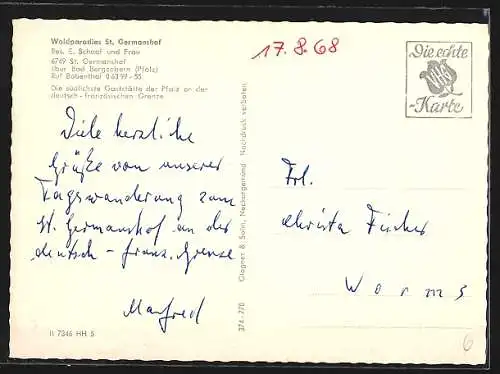 Waldparadies St. Germanshof
Bes. E. Schaaf und Frau
6749 St. Germanshof
über Bad Bergzabern (Pfalz)
Ruf Bobenthal 0 63 97 - 55
Die südlichste Gaststätte der Pfalz an der
deutsch - französischen Grenze
17.8.68
Die echte
-Karte
Viele herzliche
Grüße von unserer
Tageswanderung zum
St. Germanshof an der
deutsch - franz. Grenze
Manfred
Nachdruck verboten
Neckargemünd
374-270
Frl.
Christa Fischer
Worms
II 7346 HH S
6